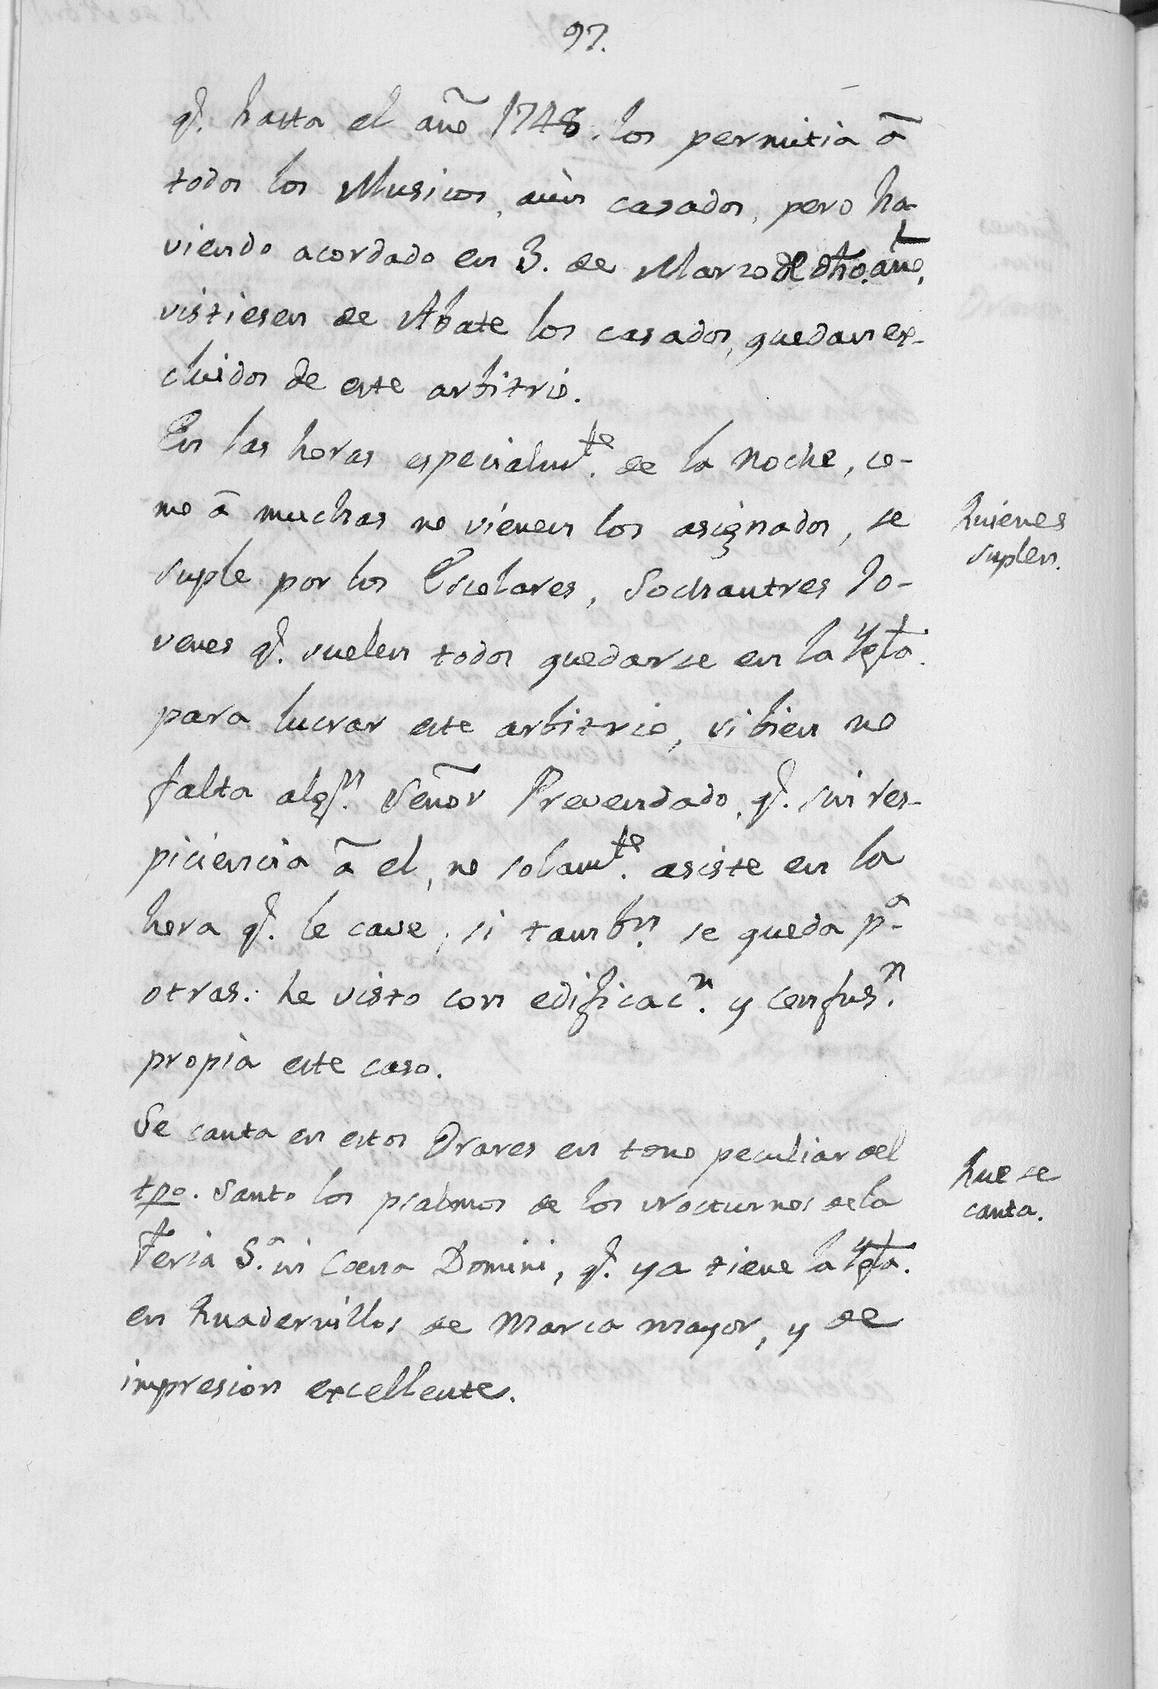 97.
q.e hasta el año 1748. los permitia â
todos los Musicos, aùn casados, pero ha-
viendo acordado en 3. de Marzo de dho. año,
vistiesen de Abate los casados, quedan ex-
cluidos de este arbitrio.
En las horas especialm.te de la noche, co-
mo â muchas no vienen los asignados, se
suple por los Escolares, Sochantres Jo-
venes q.e suelen todos quedarse en la Ygla.
para lucrar este arbitrio, si bien no
falta alg.n Señor Prevendado, q.e sin res-
piciencia â el, no solam.te asiste en la
hora q.e le cave, si tamb.n se queda p.a
otras: he visto con edificac.n y confus.n
propia este caso.
Se canta en estos Orares en tono peculiar del
tpo. Santo los psalmos de los Nocturnos de la
Feria 5.a in Coena Domini, q.e ya tiene la Ygla.
en Quadernillos de Marca mayor, y de
impresion excellente.
Quienes
suplen.
Que se
canta.